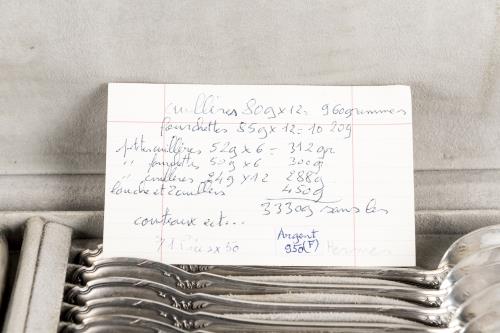 cuillères 80g x 12 960 grammes
fourchettes 85g x 12 = 10 20g
petites cuillères 52g x 6 = 312gr
" fourchettes 50g x 6 300g
" cuillères 24g x 12 288g
louche et 2 cuillers 450g
3330g sans les
couteaux ect...
71 x 50
Argent
950 (F)